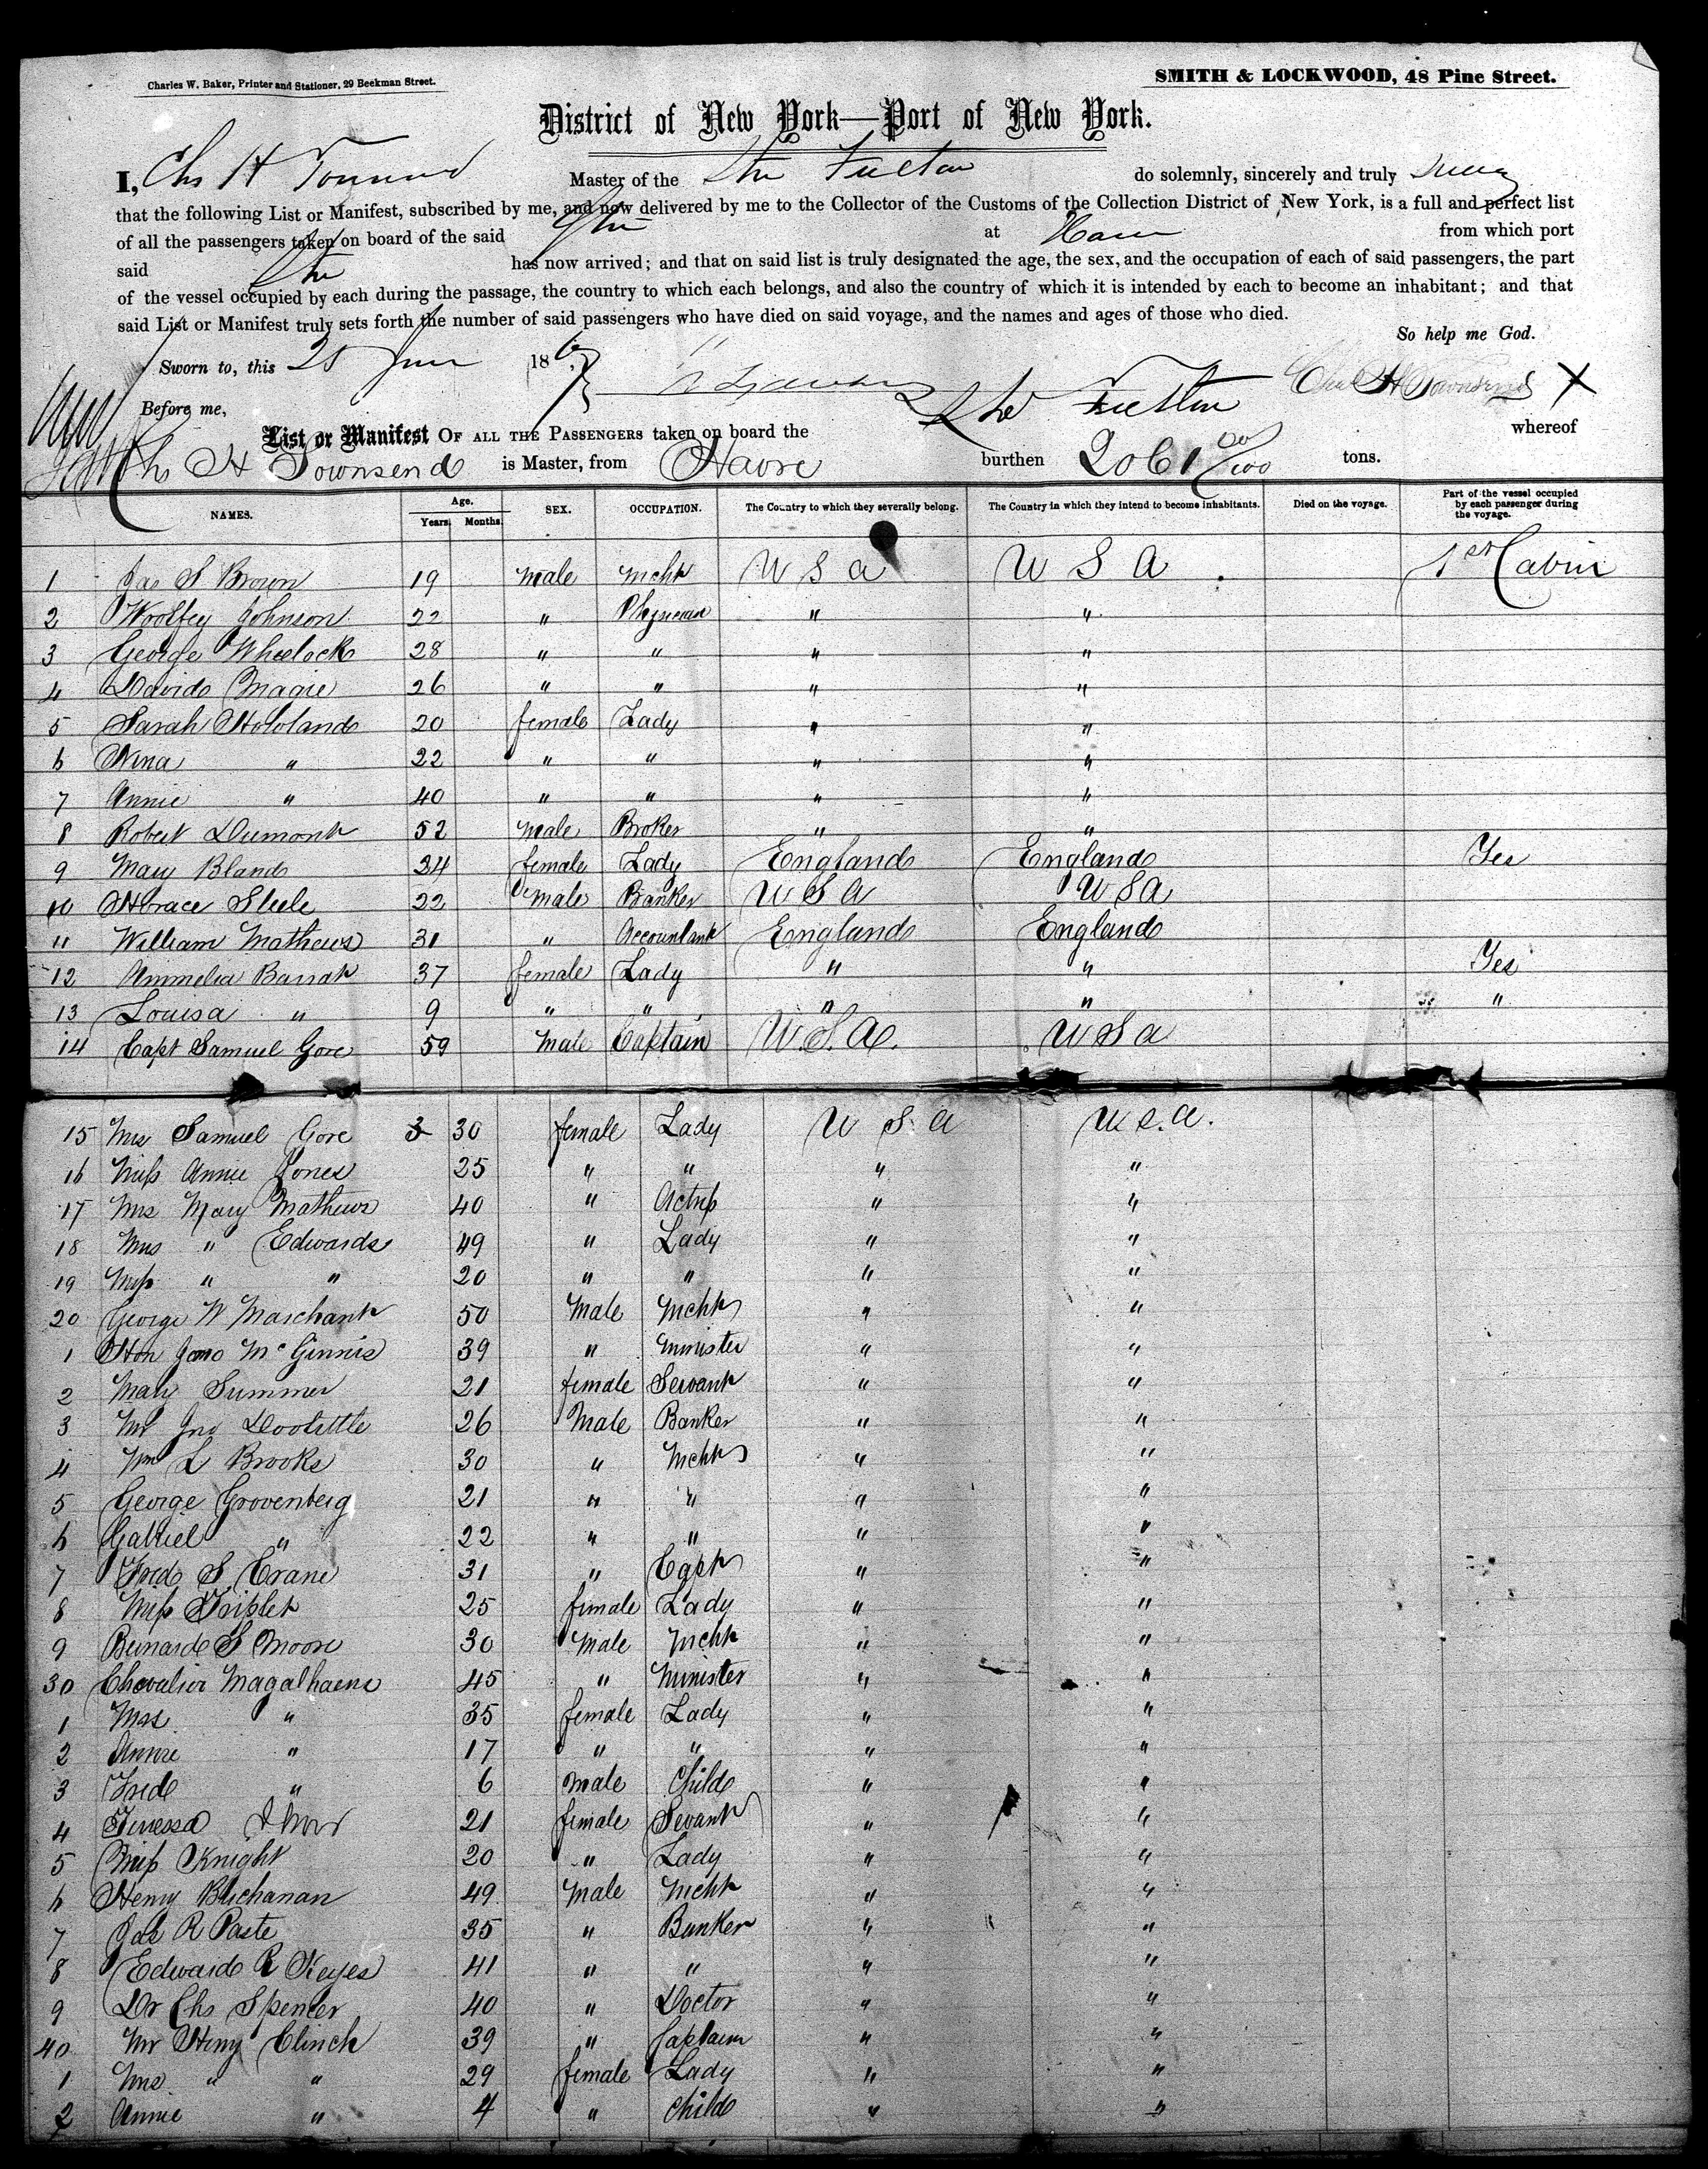 Charles W. Baker, Printer and Stationer, 29 Beekman Street.
SMITH & LOCKWOOD, 48 Pine Street.
District of New York—Port of New York.
I, Chs H Townsend Master of the Str Fulton do solemnly, sincerely and truly swear
that the following List or Manifest, subscribed by me, and now delivered by me to the Collector of the Customs of the Collection District of New York, is a full and perfect list
of all the passengers taken on board of the said Str at Havre from which port
said Str has now arrived; and that on said list is truly designated the age, the sex, and the occupation of each of said passengers, the part
of the vessel occupied by each during the passage, the country to which each belongs, and also the country of which it is intended by each to become an inhabitant; and that
said List or Manifest truly sets forth the number of said passengers who have died on said voyage, and the names and ages of those who died.
So help me God.
Sworn to, this 25 June 1867 Chas H Townsend X
Before me,
List or Manifest OF ALL THE PASSENGERS taken on board the Str Fulton whereof
Chs H Townsend is Master, from Havre burthen 2061 00/100 tons.
NAMES. Age. Years. Months. SEX. OCCUPATION. The Country to which they severally belong. The Country in which they intend to become inhabitants. Died on the voyage. Part of the vessel occupied by each passenger during the voyage.
1 Jas S Brown 19 male Mcht U S A U S A 1st Cabin
2 Woolfey Johnson 22 " Physician " "
3 George Wheelock 28 " " " "
4 David Magie 26 " " " "
5 Sarah Howland 20 female Lady " "
6 Nina " 22 " " " "
7 Annie " 40 " " " "
8 Robert Dumont 52 Male Broker " "
9 Mary Bland 24 female Lady England England Yes
10 Horace Steele 22 male Banker U S A U S A
11 William Mathews 31 " Accountant England England
12 Ammelia Barrat 37 female Lady " " Yes
13 Louisa " 9 " " " " "
14 Capt Samuel Gore 59 Male Captain U.S.A. U S A
15 Mrs Samuel Gore 3 30 female Lady U S A U.S.A.
16 Miss Annie Jones 25 " " " "
17 Mrs Mary Mathews 40 " Actress " "
18 Mrs " Edwards 49 " Lady " "
19 Miss " " 20 " " " "
20 George W Marchant 50 Male Mcht " "
1 Hon Jno McGinnis 39 " Minister " "
2 Mary Summer 21 female Servant " "
3 Mr Jno Doolittle 26 Male Banker " "
4 Wm L Brooks 30 " Mcht " "
5 George Grovenberg 21 " " " "
6 Gabriel " 22 " " " "
7 Fred S Crane 31 " Capt " "
8 Miss Triplet 25 female Lady " "
9 Bernard S Moore 30 Male Mcht " "
30 Chevalier Magalhaens 45 " Minister " "
1 Mrs " 35 female Lady " "
2 Annie " 17 " " " "
3 Fred " 6 male Child " "
4 21 female Sevant " "
5 Miss Knight 20 " Lady " "
6 Henry Buchanan 49 Male Mcht " "
7 Jas R Paste 35 " Banker " "
8 Edward R Keyes 41 " " " "
9 Dr Chs Spencer 40 " Doctor " "
40 Mr Heny Clinch 39 " Captain " "
1 Mrs " " 29 female Lady " "
2 Annie " 4 " Child " "